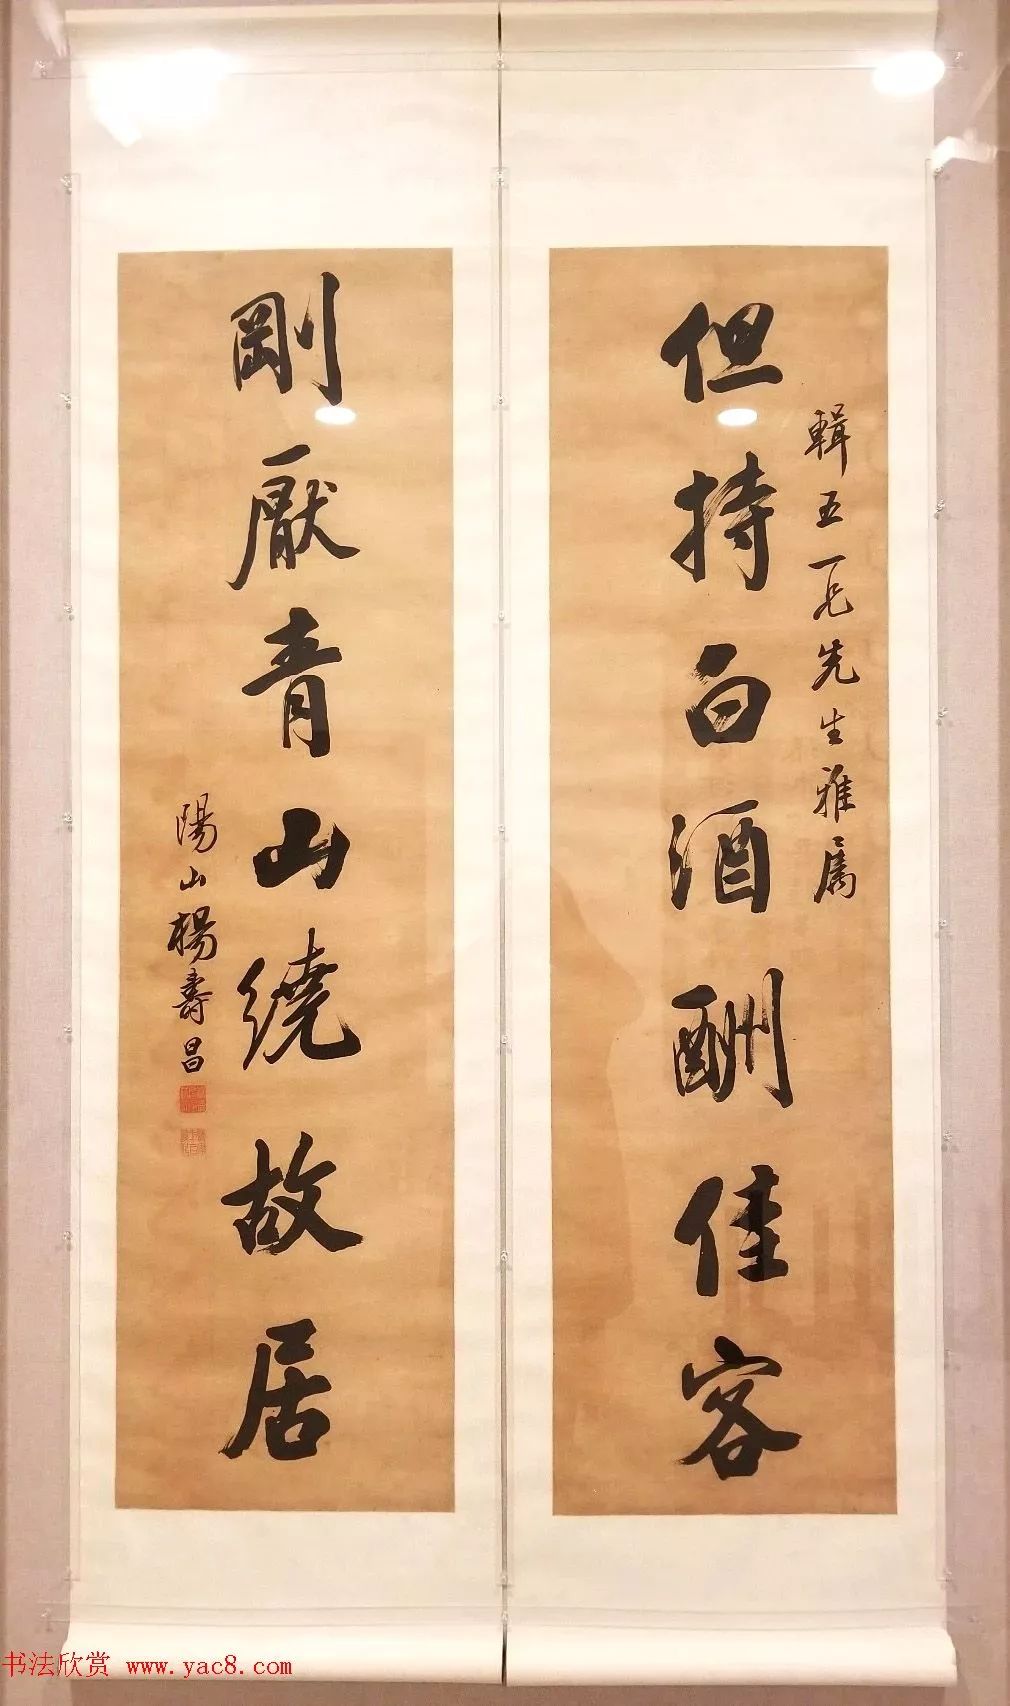 輯五一兄先生雅属
但持白酒酬佳客
剛厭青山繞故居
陽山楊壽昌
书法欣赏 www.yac8.com